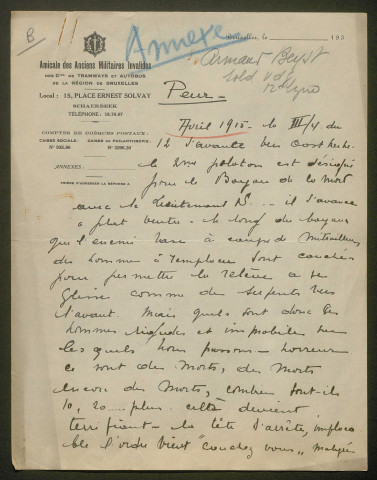 B
Annexe
Bruxelles, le 193
Armand Beyst
Sold vd
12e Lyne
Amicale des Anciens Militaires Invalides
DES Cies DE TRAMWAYS ET AUTOBUS
DE LA RÉGION DE BRUXELLES
Local : 15, PLACE ERNEST SOLVAY
SCHAERBEEK
COMPTE DE CHÈQUES POSTAUX :
CAISSE SOCIALE : CAISSE DE PHILANTHROPIE :
ANNEXES :
PRIÈRE D'ADRESSER LA RÉPONSE A
Peur
Avril 1915 - le III/4 du
12 s'avance vers Oostkerke
le 2me peloton est désigné
pour le Boyau de la Mort
avec le Lieutenant S... il s'avance
à plat ventre - le long du boyau
que l'ennemi rase à coups de mitrailleuse
des hommes à l'emplacement sont couchés
pour permettre la relève à se
glisser comme des serpents vers
l'avant. Mais quels sont donc ces
hommes rigides et immobiles sur
lesquels nous passons - horreur
ce sont des Morts, des Morts
encore des Morts, combien sont-ils
10, 20 .... plus. cela devient
terrifiant - la tête s'arrête, implaca
ble l'ordre vient "couchez vous" malgré